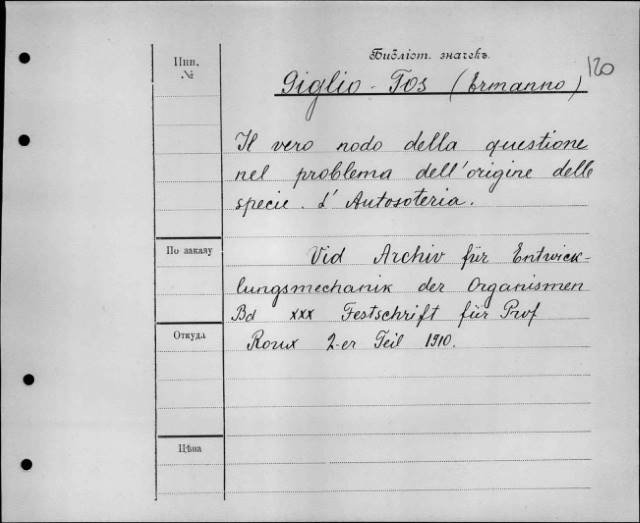 Инв.
№
Библіот. значекъ.
120
Giglio-Tos (Ermanno)
Il vero nodo della questione
nel problema dell'origine delle
specie. L'Autosoteria.
По заказу
Vid Archiv für Entwick-
lungsmechanik der Organismen
Bd xxx Festschrift für Prof
Откуда
Roux 2-er Teil 1910.
Цѣна